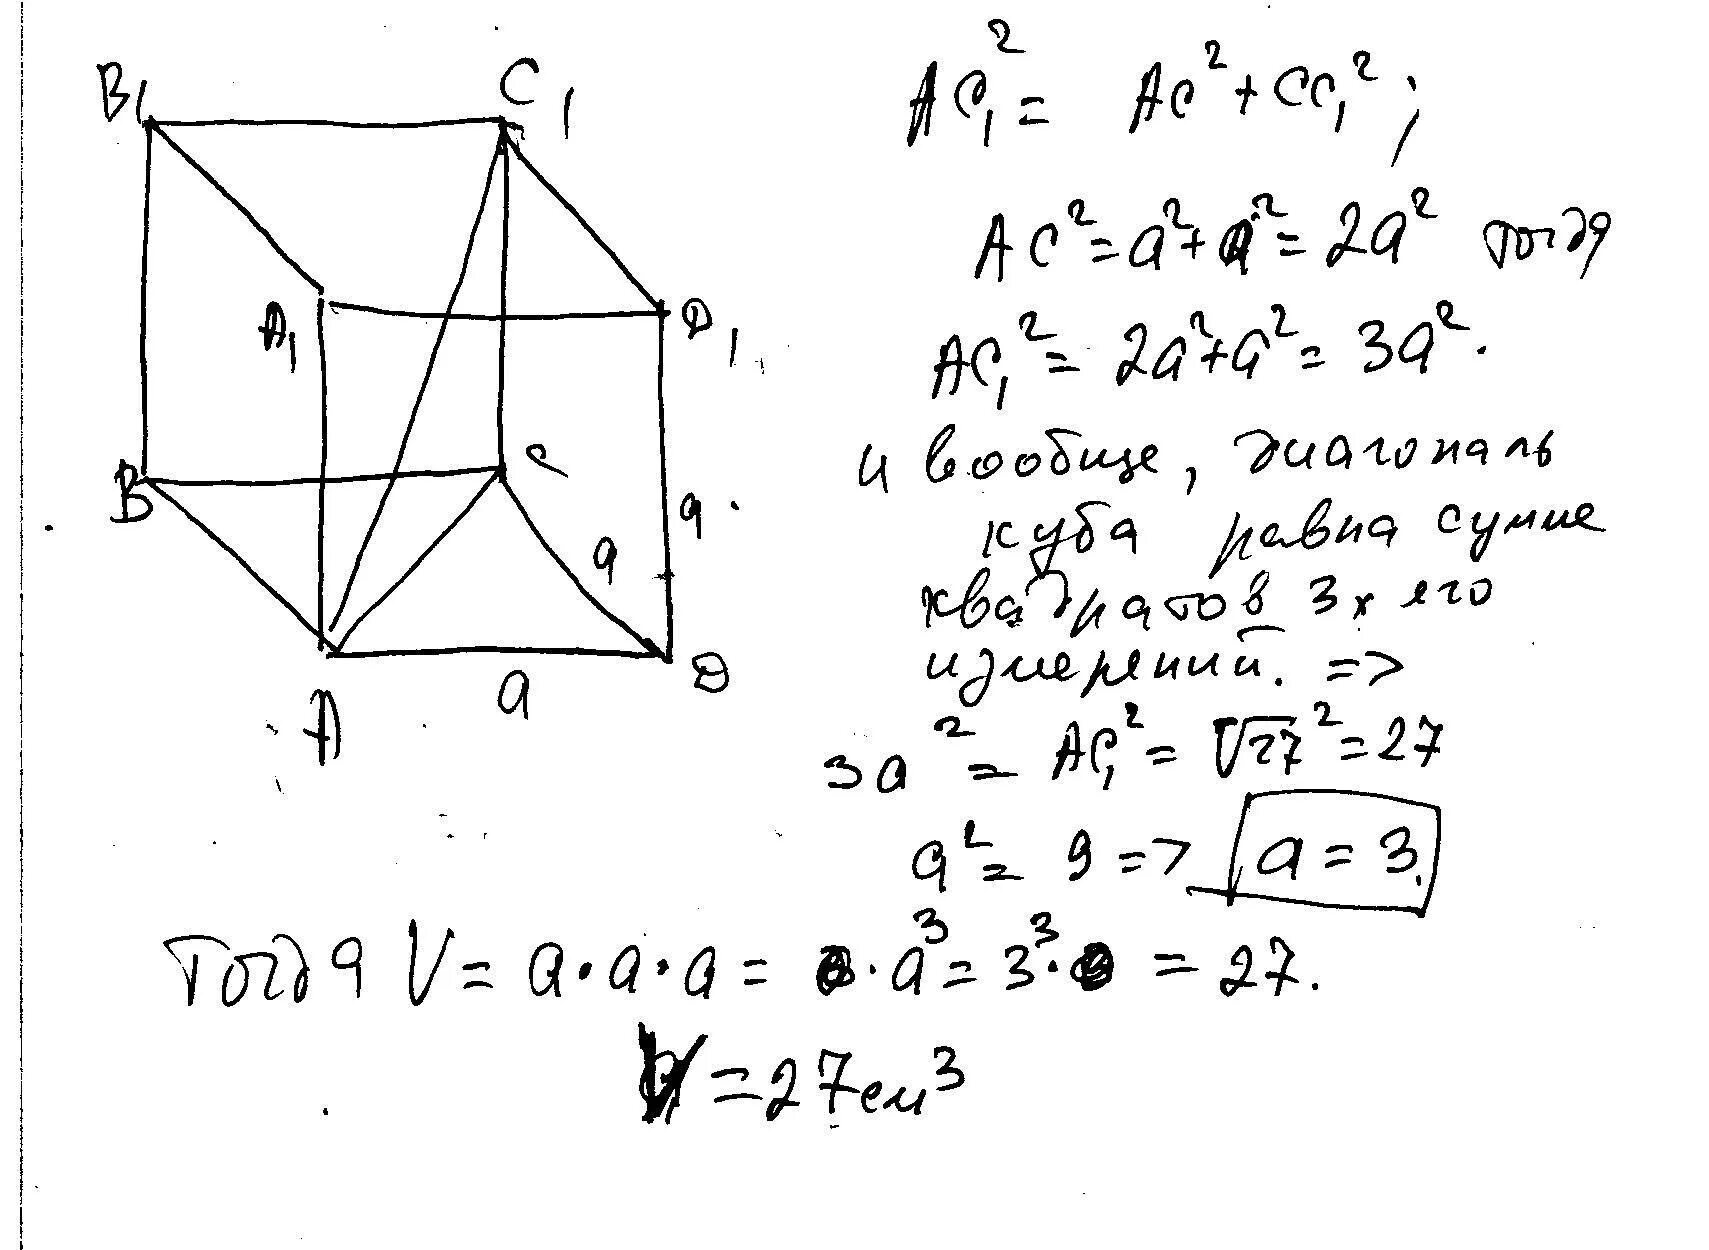 B₁ C₁
A₁ D₁
B C
a
a
A a D
AC₁² = AC² + CC₁²;
AC² = a² + a² = 2a² тогда
AC₁² = 2a² + a² = 3a².
и вообще, диагональ
куба равна сумме
квадратов 3х его
измерений. =>
3a² = AC₁² = √27² = 27
a² = 9 => a = 3.
Тогда V = a·a·a = ·a³ = 3³· = 27.
V = 27см³